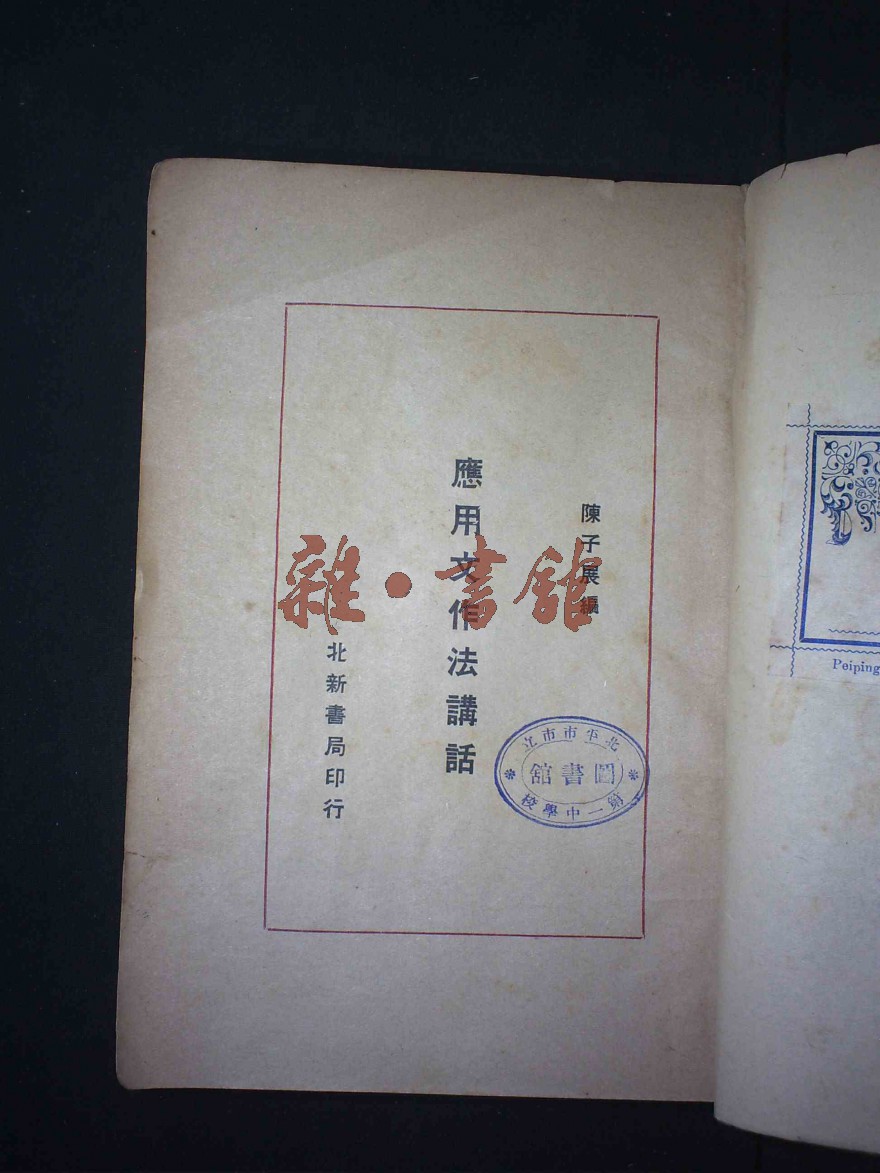 陳子展編
應用文作法講話
北新書局印行
雜•書館
北平市市立
圖書館
第一中學校
Peiping